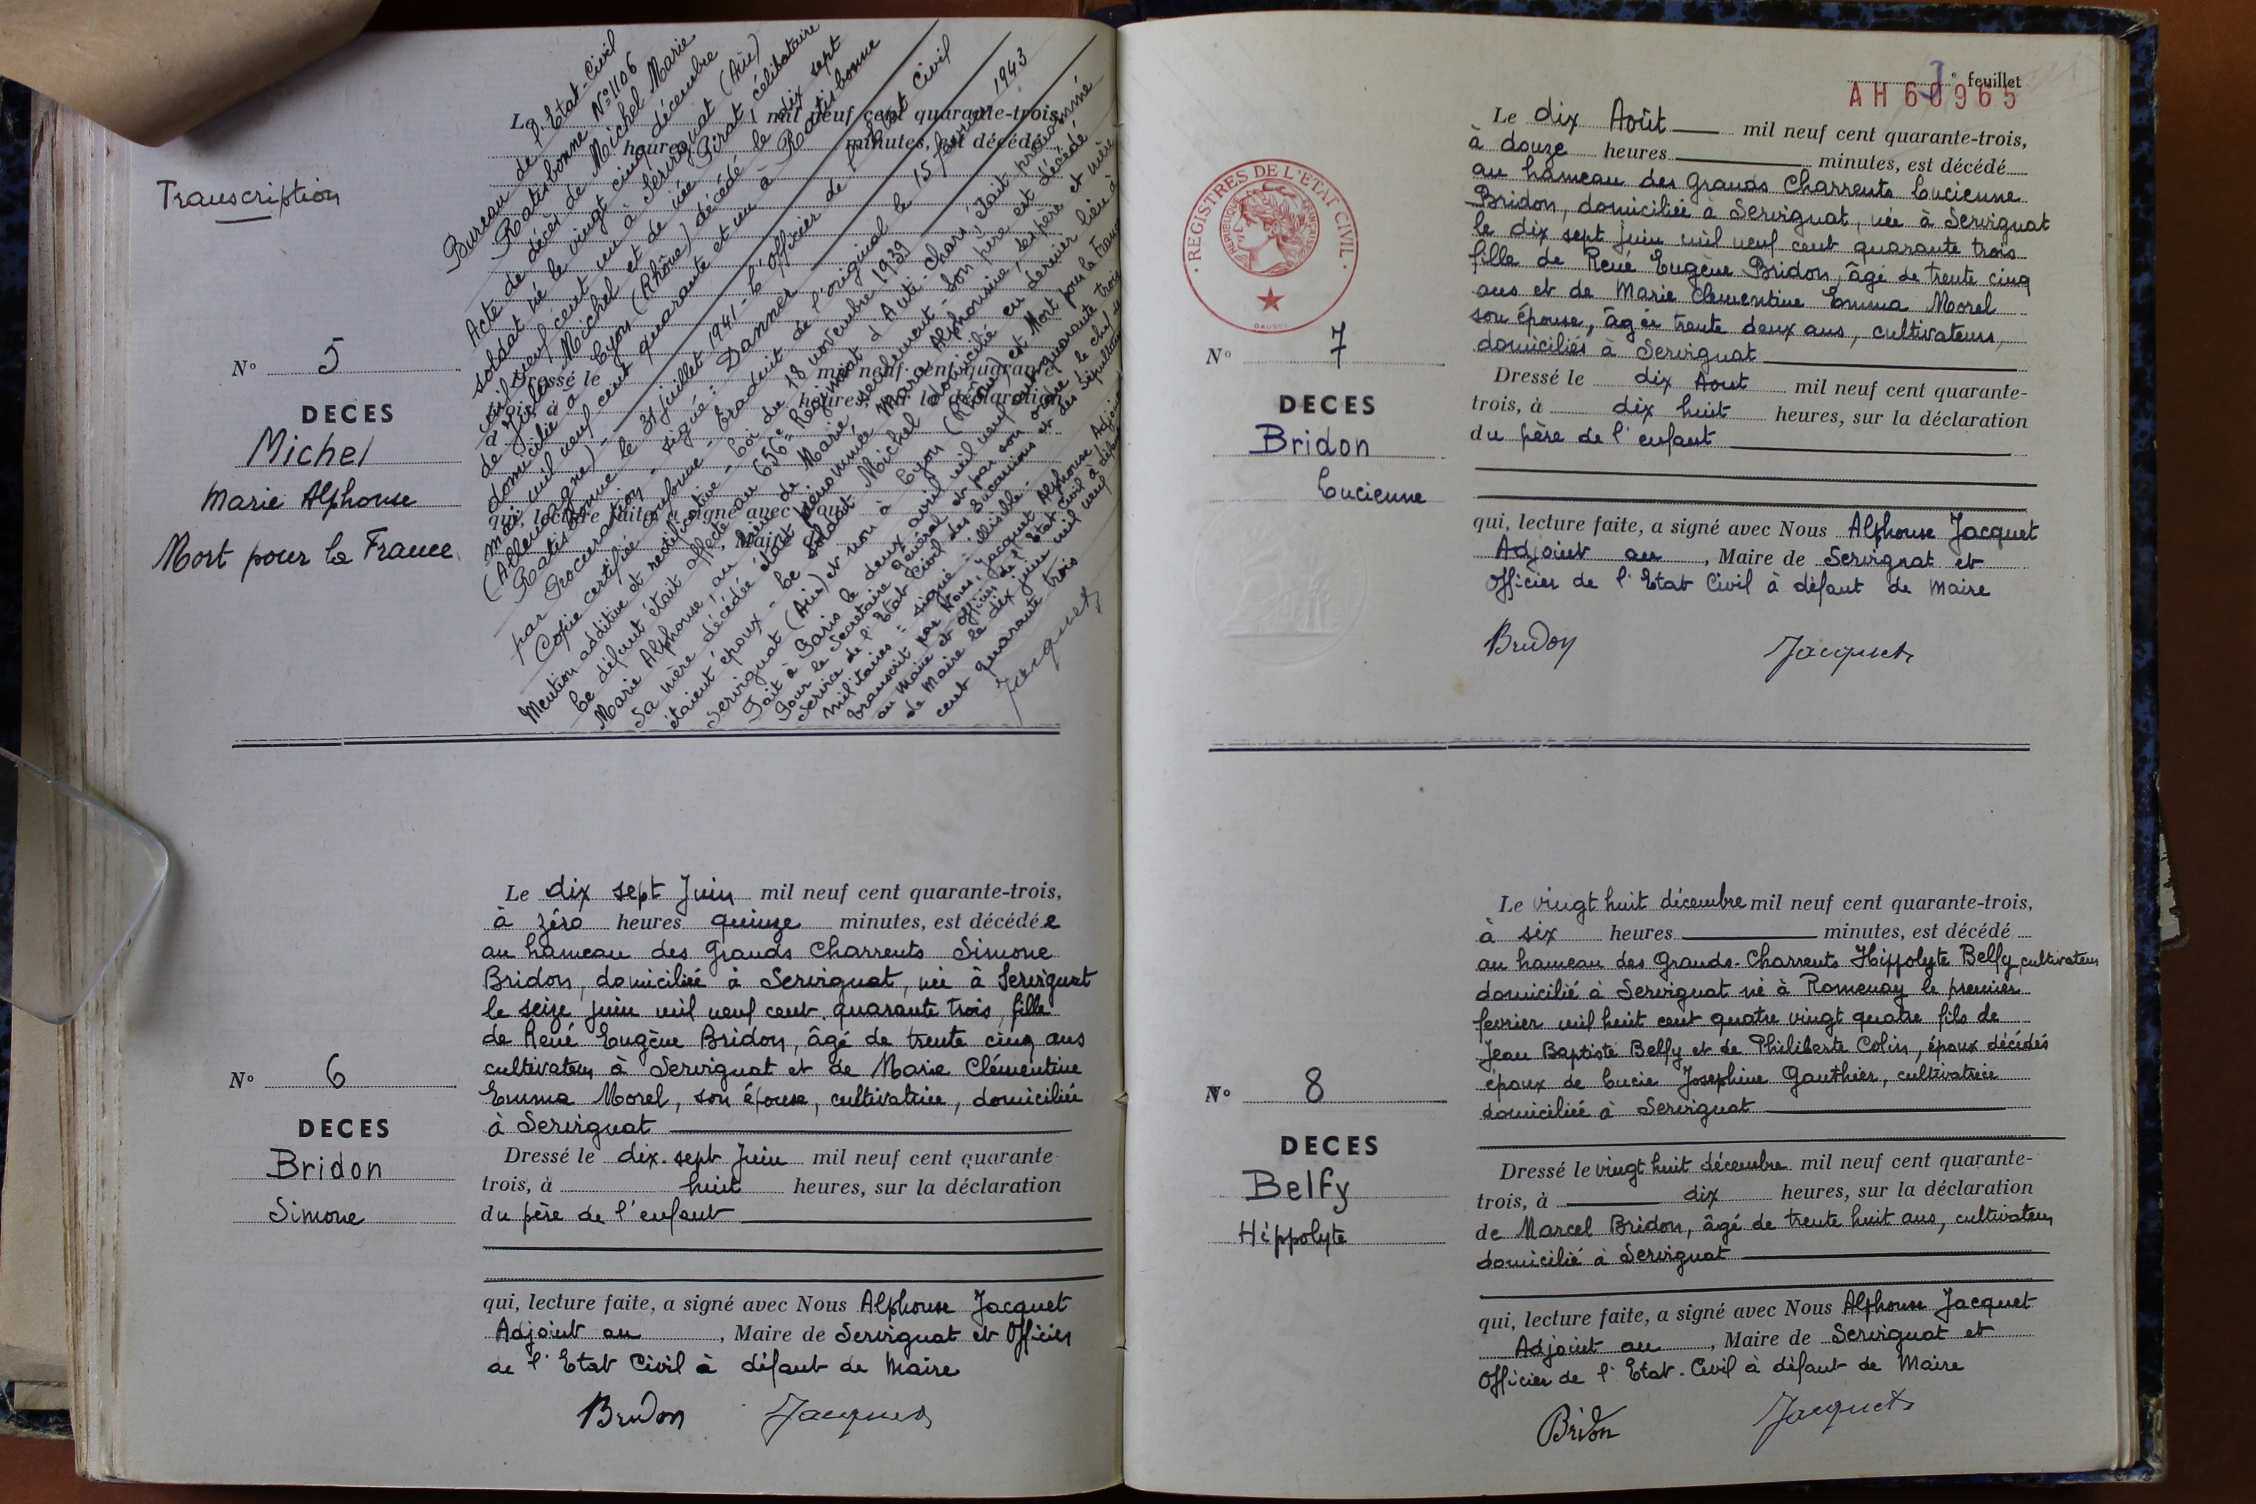 Transcription
N° 5
DECES
Michel
Marie Alphonse
Mort pour la France
Le mil neuf cent quarante-trois,
heures minutes, est décédé
Dressé le mil neuf cent quarante-
trois, à heures, sur la déclaration
qui, lecture faite, a signé avec Nous
Maire de
Bureau de l'Etat-Civil
Ratisbonne N° 1106
Acte de décès de Michel Marie
soldat né le vingt cinq décembre
mil neuf cent un à Servignat (Ain)
de Jules Michel et de née Pirat, célibataire
domicilié à Lyon (Rhône) décédé le dix sept
mai mil neuf cent quarante et un à Ratisbonne
(Allemagne)
Ratisbonne le 31 juillet 1941 - L'officier de l'Etat Civil
par Procuration - signé : Danner
Copie certifiée conforme - traduit de l'original le 15 février 1943
Mention additive et rectificative - Loi du 18 novembre 1939
Le défunt était affecté au 656e Régiment d'Anti-chars, était prénommé
Marie Alphonse, au lieu de Marie seulement - Son père est décédé
Sa mère décédée était prénommée Marie Alphonsine, ses père et mère
étaient époux - Le soldat Michel domicilié en dernier lieu à
Servignat (Ain) et non à Lyon (Rhône) est Mort pour la France
Fait à Paris le deux avril mil neuf cent quarante trois
Pour le Secrétaire général et par son ordre le chef du
Service de l'Etat Civil des Successions et des Sépultures
militaires - signé : illisible -
transcrit par Nous, Jacquet Alphonse, Adjoint
au Maire et officier de l'Etat Civil à défaut
de Maire le dix juin mil neuf
cent quarante trois
Jacquet
N° 6
DECES
Bridon
Simone
Le dix sept Juin mil neuf cent quarante-trois,
à zéro heures quinze minutes, est décédée
au hameau des Grands Charrents Simone
Bridon, domiciliée à Servignat, née à Servignat
le seize juin mil neuf cent quarante trois, fille
de René Eugène Bridon, âgé de trente cinq ans
cultivateur à Servignat et de Marie Clémentine
Emma Morel, son épouse, cultivatrice, domiciliée
à Servignat
Dressé le dix-sept Juin mil neuf cent quarante-
trois, à huit heures, sur la déclaration
du père de l'enfant
qui, lecture faite, a signé avec Nous Alphonse Jacquet
Adjoint au , Maire de Servignat et Officier
de l'Etat Civil à défaut de Maire
Bridon Jacquet
3e feuillet
AH 60965
REGISTRES DE L'ETAT CIVIL
N° 7
DECES
Bridon
Lucienne
Le dix Août mil neuf cent quarante-trois,
à douze heures minutes, est décédé
au hameau des Grands Charrents Lucienne
Bridon, domiciliée à Servignat, née à Servignat
le dix sept juin mil neuf cent quarante trois
fille de René Eugène Bridon, âgé de trente cinq
ans et de Marie Clementine Emma Morel
son épouse, âgée trente deux ans, cultivateurs,
domiciliés à Servignat
Dressé le dix Aout mil neuf cent quarante-
trois, à dix huit heures, sur la déclaration
du père de l'enfant
qui, lecture faite, a signé avec Nous Alphonse Jacquet
Adjoint au , Maire de Servignat et
Officier de l'Etat Civil à défaut de Maire
Bridon Jacquet
N° 8
DECES
Belfy
Hippolyte
Le vingt huit décembre mil neuf cent quarante-trois,
à six heures minutes, est décédé
au hameau des Grands-Charrents Hippolyte Belfy, cultivateur
domicilié à Servignat né à Romenay le premier
fevrier mil huit cent quatre vingt quatre fils de
Jean Baptiste Belfy et de Philiberte Colin, époux décédés
époux de Lucie Josephine Gauthier, cultivatrice
domiciliée à Servignat
Dressé le vingt huit décembre mil neuf cent quarante-
trois, à dix heures, sur la déclaration
de Marcel Bridon, âgé de trente huit ans, cultivateur
domicilié à Servignat
qui, lecture faite, a signé avec Nous Alphonse Jacquet
Adjoint au , Maire de Servignat et
Officier de l'Etat-Civil à défaut de Maire
Bridon Jacquet